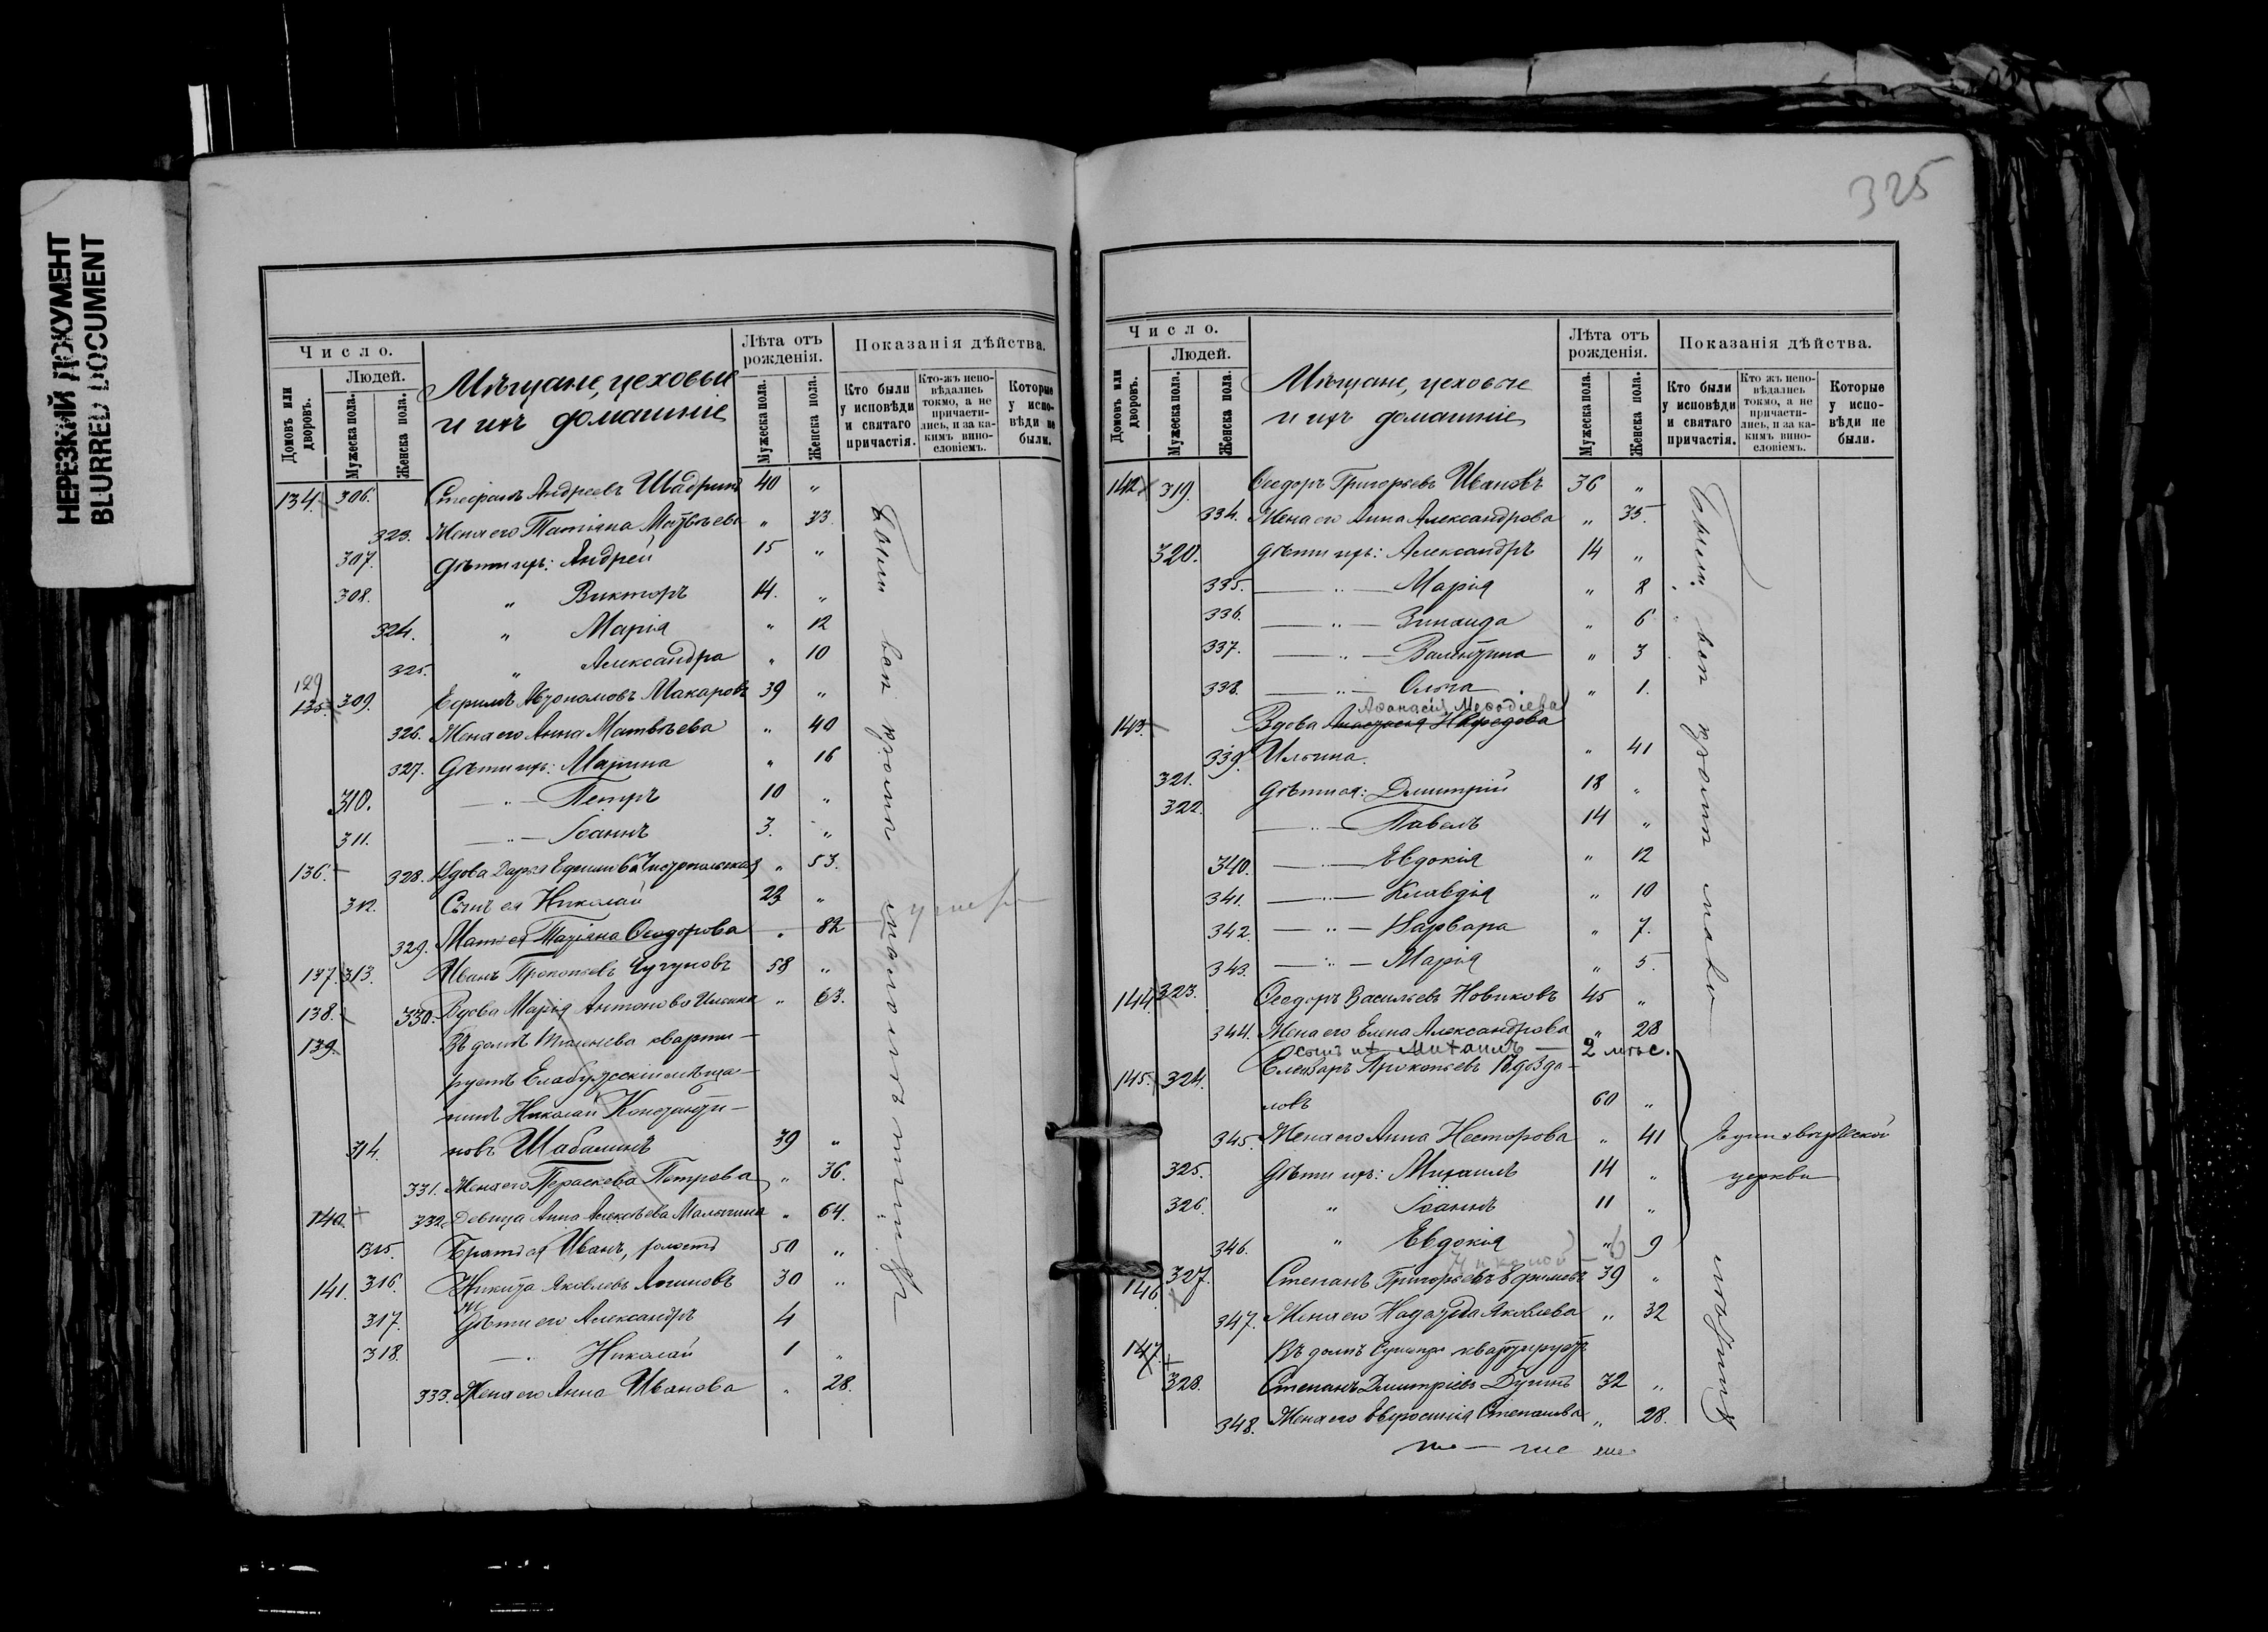 НЕРЕЗКИЙ ДОКУМЕНТ
BLURRED DOCUMENT
Число.
Домовъ или дворовъ.
Людей.
Мужеска пола.
Женска пола.
Мѣщане, цеховые
и ихъ домашніе
Лѣта отъ рожденія.
Мужеска пола.
Женска пола.
Показанія дѣйства.
Кто были у исповѣди и святаго причастія.
Кто-жъ исповѣдались токмо, а не причастились, и за какимъ винословіемъ.
Которые у исповѣди не были.
134. 306. Стефанъ Андреевъ Шадринъ 40 "
323. Жена его Татіана Матвѣева " 33.
307. Дѣти ихъ: Андрей 15 "
308. " Викторъ 14. "
324. " Марія " 12
325. " Александра " 10
129
135. 309. Ефимъ Артамовъ Макаровъ 39 "
326. Жена его Анна Матвѣева " 40
327. Дѣти ихъ: Марина " 16
310. — " — Петръ 10 "
311. — " — Іоаннъ 3. "
136. 328. Вдова Дарья Ефимова Чистопольская " 53.
312. Сынъ ея Николай 23 "
329. Мать ея Татіана Ѳеодорова — " 82 — умер
137. 313. Иванъ Прокопьевъ Чугуновъ 58 "
138. 330. Вдова Марія Антонова Ильина " 63.
139. Въ домѣ кварти-
руетъ Елабужскій мѣща-
нинъ Николай Константи-
314. новъ Шабалинъ 39 "
331. Жена его Параскева Петрова " 36.
140. 332. Девица Анна Алексѣева Малыгина " 64.
315. Братъ ея Иванъ, холостъ 50 "
141. 316. Никита Яковлевъ Логиновъ 30 "
317. Дѣти его Александръ 4
318. — " Николай 1 "
333. Жена его Анна Иванова " 28.
Были все кромѣ
325
Число.
Домовъ или дворовъ.
Людей.
Мужеска пола.
Женска пола.
Мѣщане, цеховые
и ихъ домашніе
Лѣта отъ рожденія.
Мужеска пола.
Женска пола.
Показанія дѣйства.
Кто были у исповѣди и святаго причастія.
Кто жъ исповѣдались токмо, а не причастились, и за какимъ винословіемъ.
Которые у исповѣди не были.
142. 319. Ѳеодоръ Григорьевъ Ивановъ 36 "
334. Жена его Анна Александрова " 35.
320. Дѣти ихъ: Александръ 14 "
335. — " — Марія " 8
336. — " — Зинаида " 6
337. — " — Валентина " 3
338. — " — Ольга " 1.
Аѳанасія Меѳодіева
143. Вдова Анастасія
339. Ильина. " 41
321. Дѣти ея: Димитрій 18 "
322. — " — Павелъ 14 "
340. — " — Евдокія " 12
341. — " — Клавдія " 10
342. — " — Варвара " 7.
343. — " — Марія " 5.
144. 323. Ѳеодоръ Васильевъ Новиковъ 45 "
344. Жена его Елена Александрова " 28
сынъ их Михаилъ — 2 мѣс.
145. 324. Елеазаръ Прокопьевъ
ловъ 60 "
345. Жена его Анна Несторова " 41
325. Дѣти ихъ: Михаилъ 14 "
326. " Іоаннъ 11 "
346. " Евдокія " 9
Николай — 6
146. 327. Степанъ Григорьевъ Ефимовъ 39 "
347. Жена его Надежда Яковлева " 32
147. Въ домѣ квартируетъ
328. Степанъ Димитріевъ Дугинъ 32 "
348. Жена его Евфросинія Степанова " 28.
Были все кромѣ
Единовѣрческой
церкви